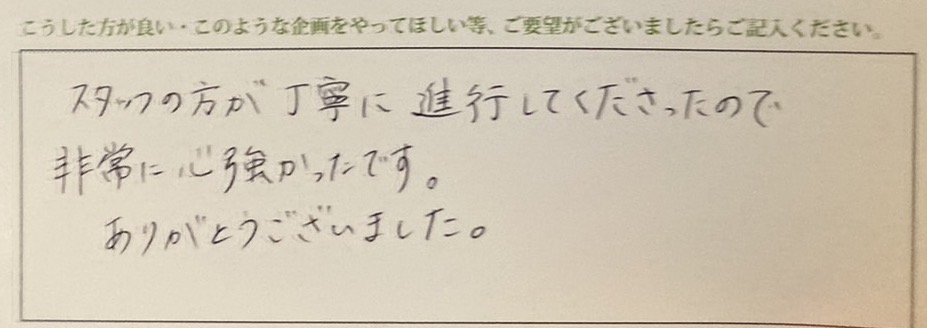 こうした方が良い・このような企画をやってほしい等、ご要望がございましたらご記入ください。
スタッフの方が丁寧に進行してくださったので
非常に心強かったです。
ありがとうございました。